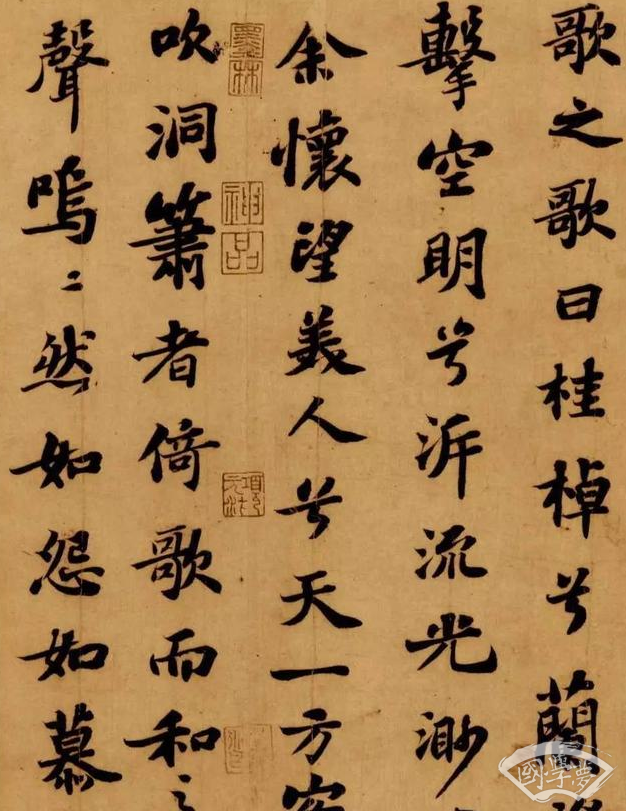 歌之歌曰桂棹兮蘭
擊空明兮泝流光渺
余懷望美人兮天一方客
吹洞簫者倚歌而和之
聲嗚〻然如怨如慕
墨林
神品
國學夢